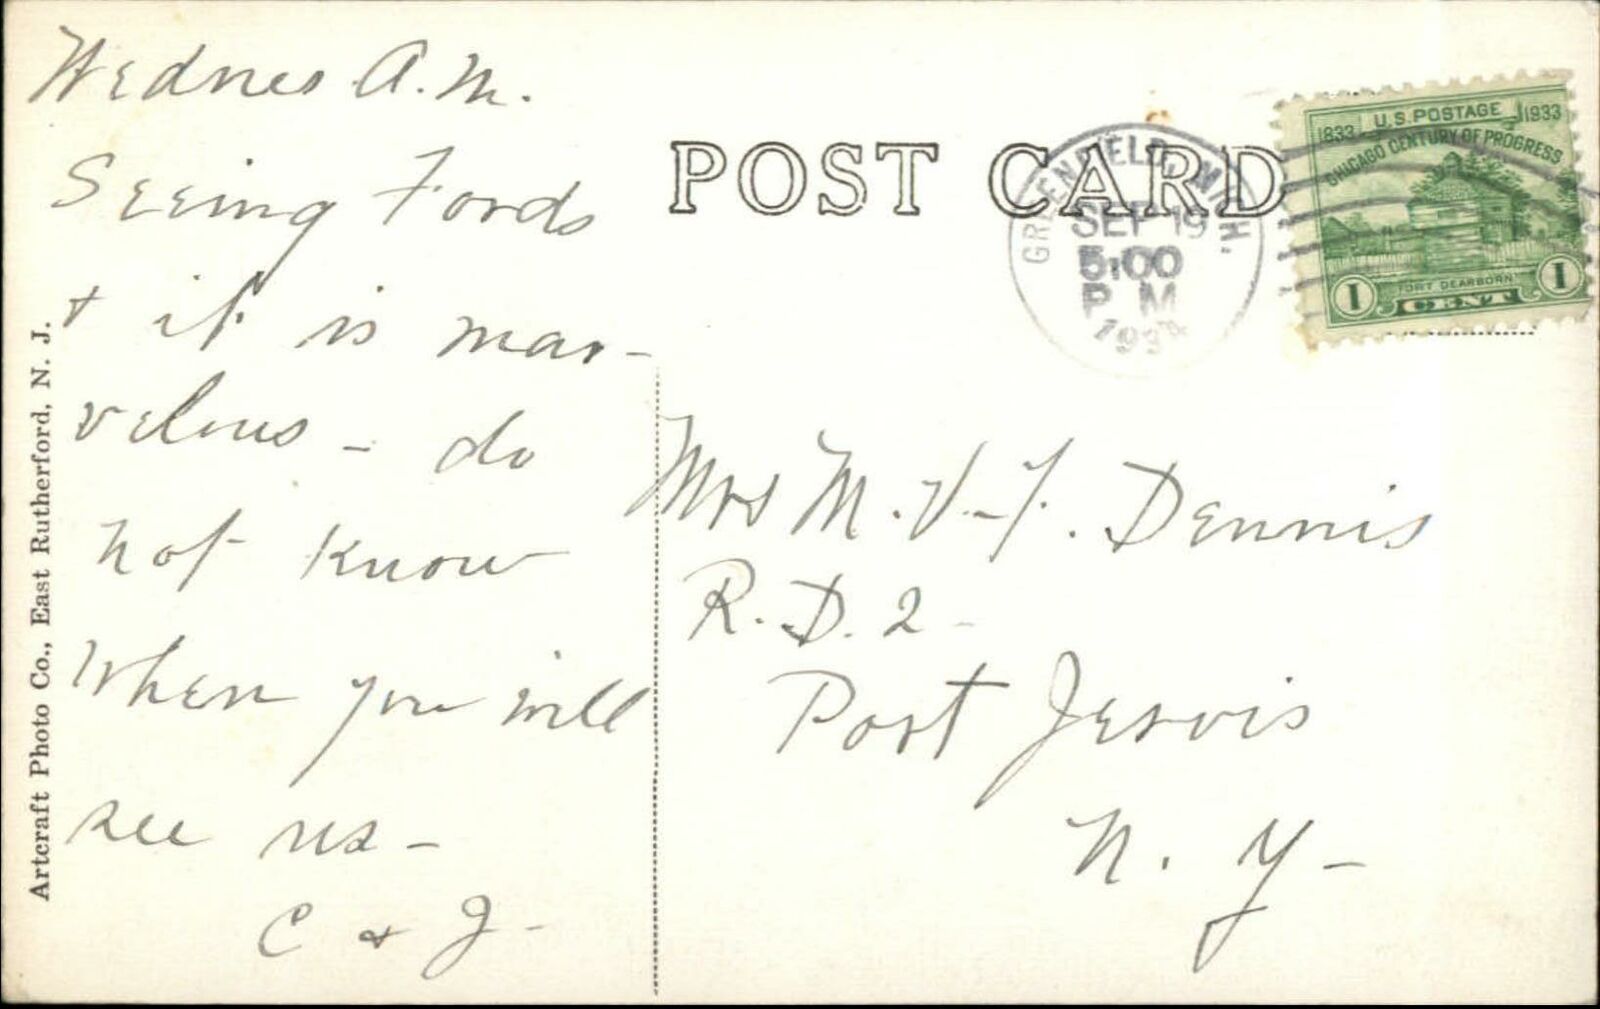 Wednes A.M.
Seeing Fords
+ it is mar-
velous - do
not know
when you will
see us -
C + J -
Artcraft Photo Co., East Rutherford, N. J.
POST CARD
GREENFIELD, MICH.
SEP 19
5:00
P M
1934
U.S. POSTAGE
1833 1933
CHICAGO CENTURY OF PROGRESS
FORT DEARBORN
1 CENT 1
Mrs M. V-F. Dennis
R. D. 2 -
Port Jervis
N. Y -